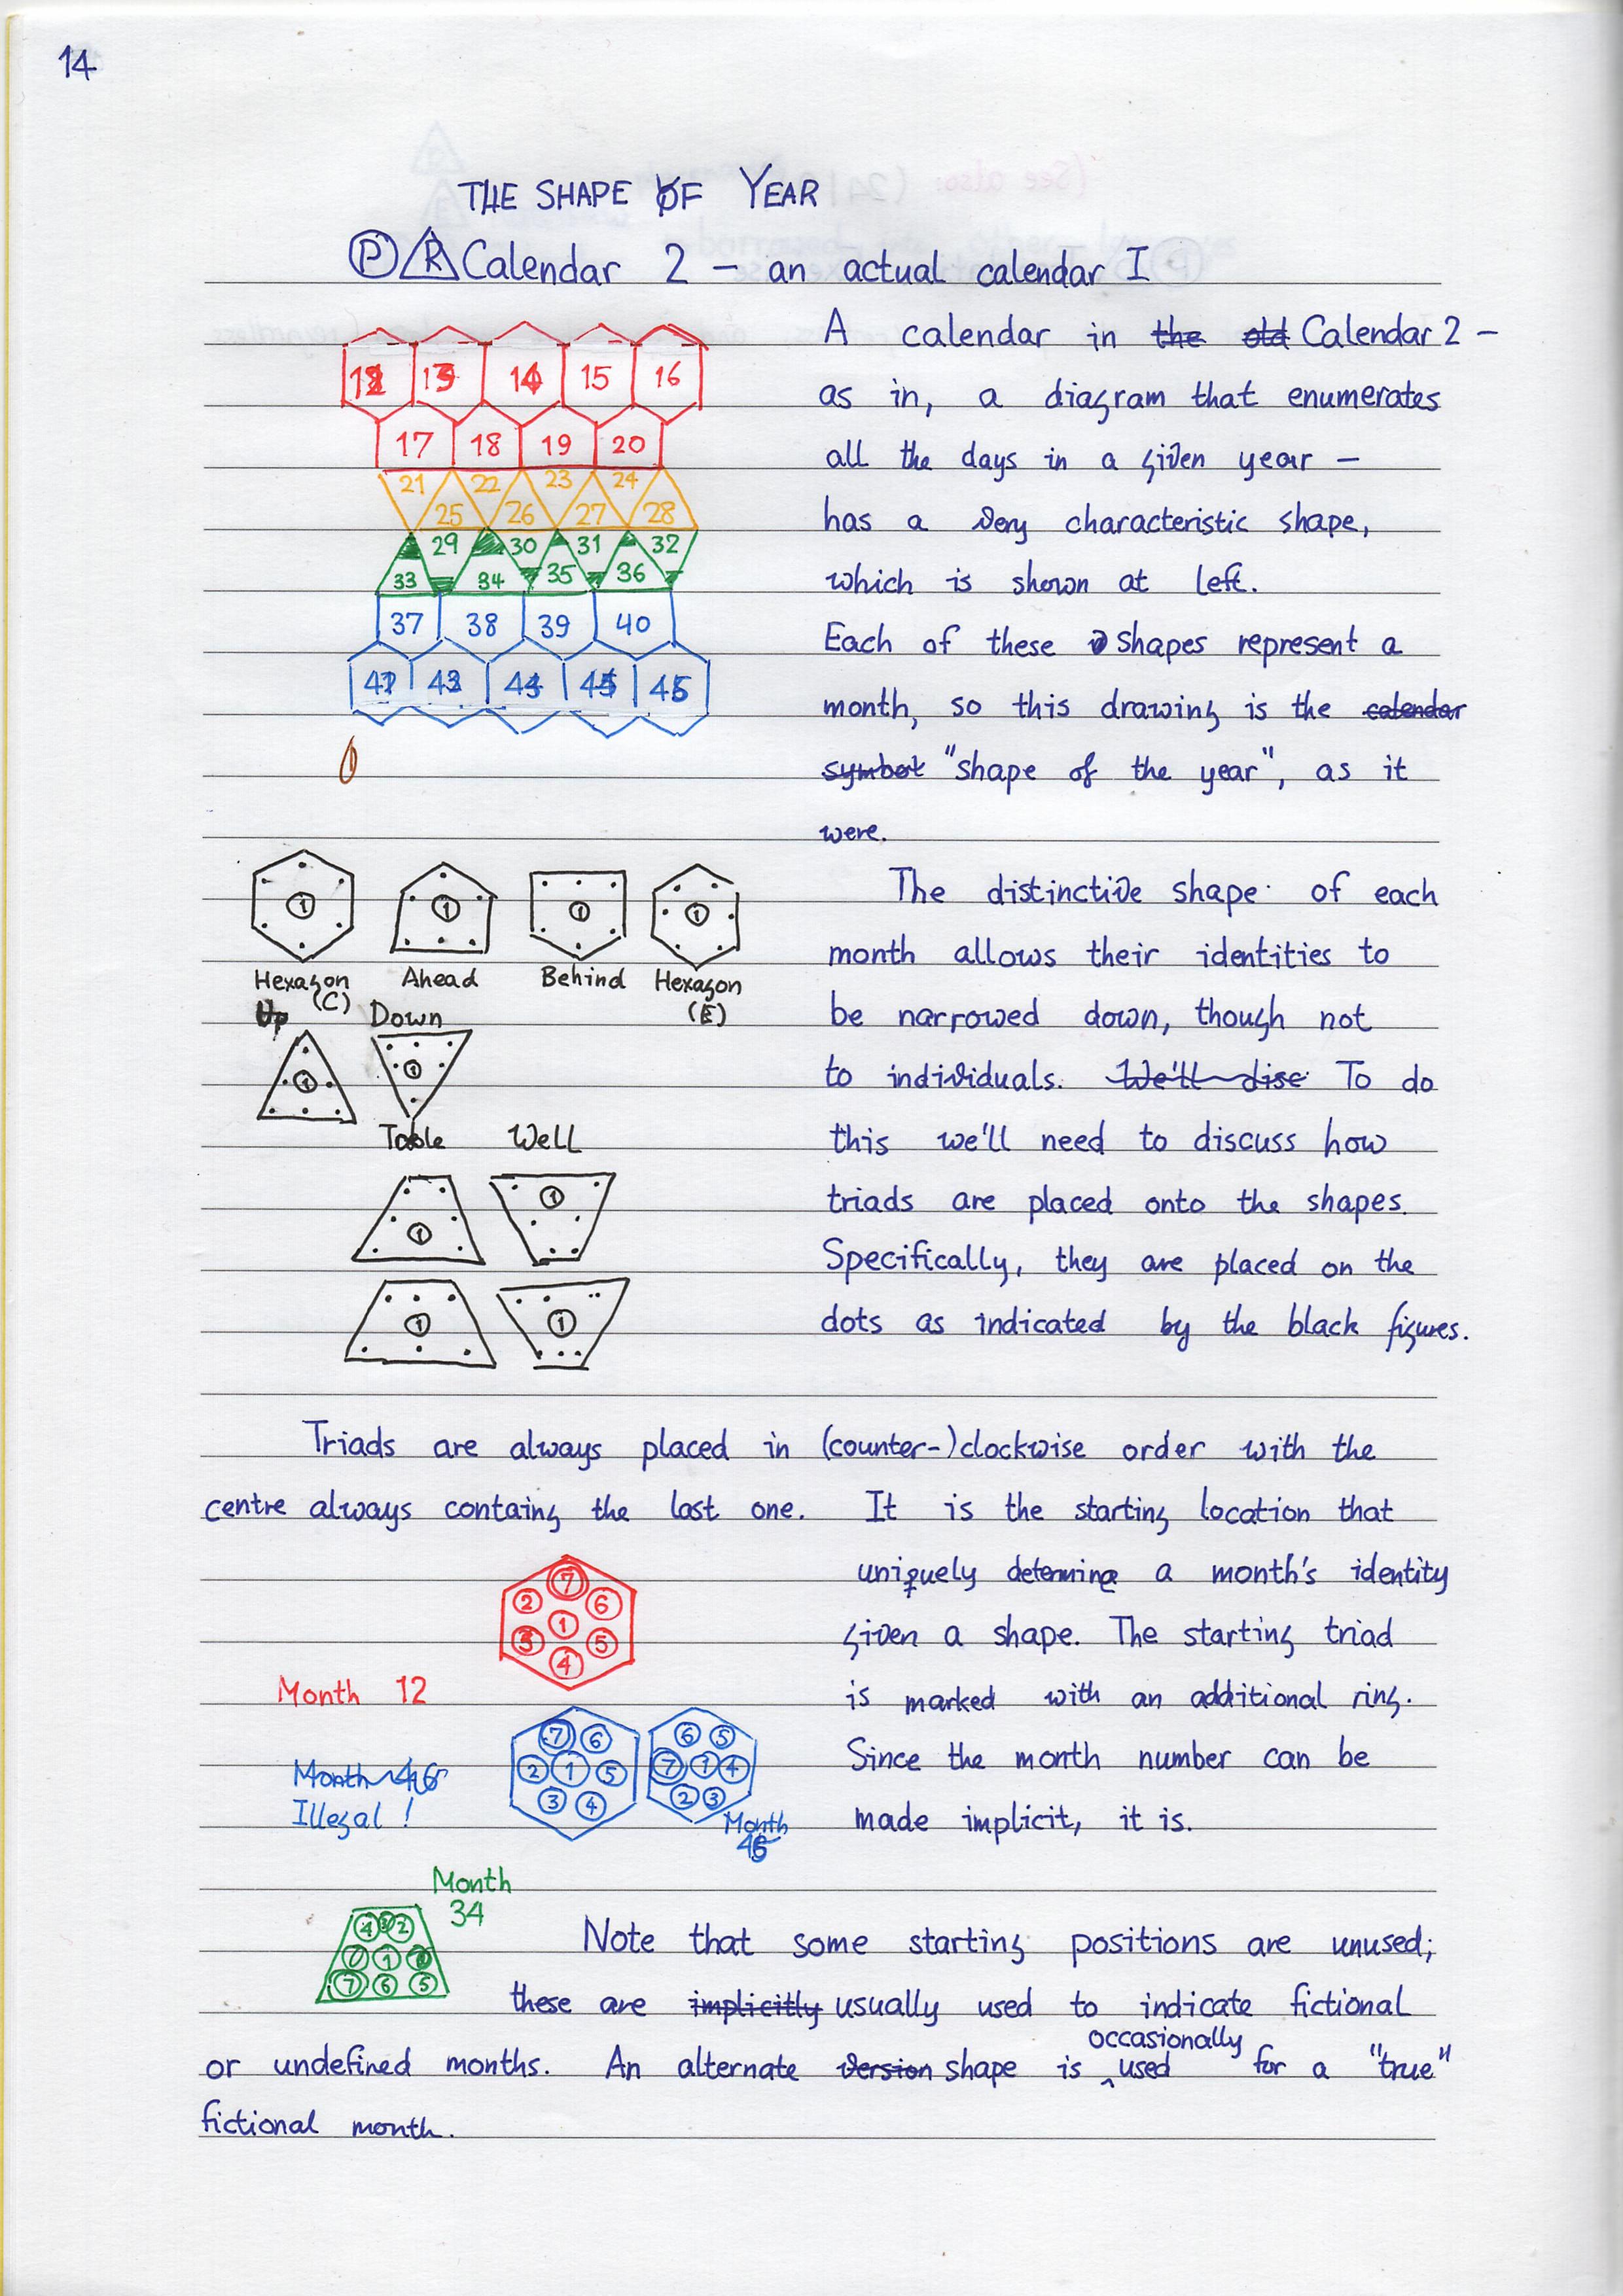 14
THE SHAPE OF YEAR
P R Calendar 2 – an actual calendar I
12 13 14 15 16
17 18 19 20
21 22 23 24
25 26 27 28
29 30 31 32
33 34 35 36
37 38 39 40
41 42 43 44 45
A calendar in the old Calendar 2 –
as in, a diagram that enumerates
all the days in a given year –
has a very characteristic shape,
which is shown at left.
Each of these shapes represent a
month, so this drawing is the calendar
symbol "shape of the year", as it
were.
1 1 1 1
Hexagon (C) Ahead Behind Hexagon (E)
Up Down
1 1
Table Well
1 1
1 1
The distinctive shape of each
month allows their identities to
be narrowed down, though not
to individuals. We'll disc To do
this we'll need to discuss how
triads are placed onto the shapes.
Specifically, they are placed on the
dots as indicated by the black figures.
Triads are always placed in (counter-)clockwise order with the
centre always containg the last one. It is the starting location that
uniquely determine a month's identity
given a shape. The starting triad
is marked with an additional ring.
Since the month number can be
made implicit, it is.
7
2 6
1
3 5
4
Month 12
7 6
2 1 5
3 4
Month 46
Illegal !
6 5
7 1 4
2 3
Month
45
Month
34
4 3 2
1
7 6 5
Note that some starting positions are unused;
these are implicitly usually used to indicate fictional
or undefined months. An alternate version shape is occasionally used for a "true"
fictional month.